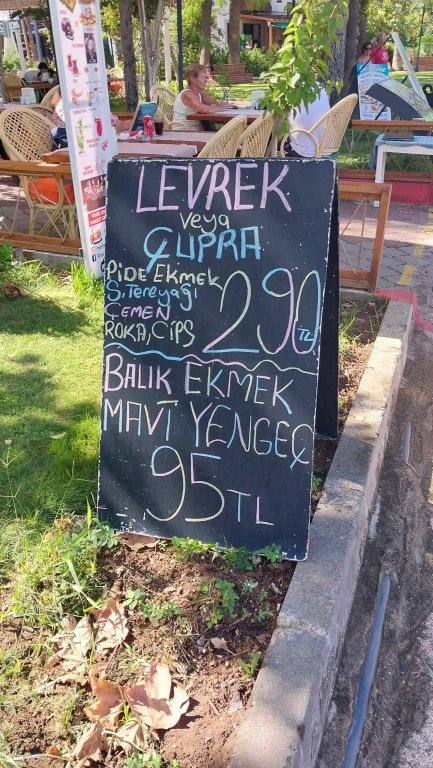 LEVREK
veya
ÇUPRA
PİDE EKMEK
S. Tereyağı
ÇEMEN
ROKA, CİPS
290 TL
BALIK EKMEK
MAVİ YENGEÇ
95 TL